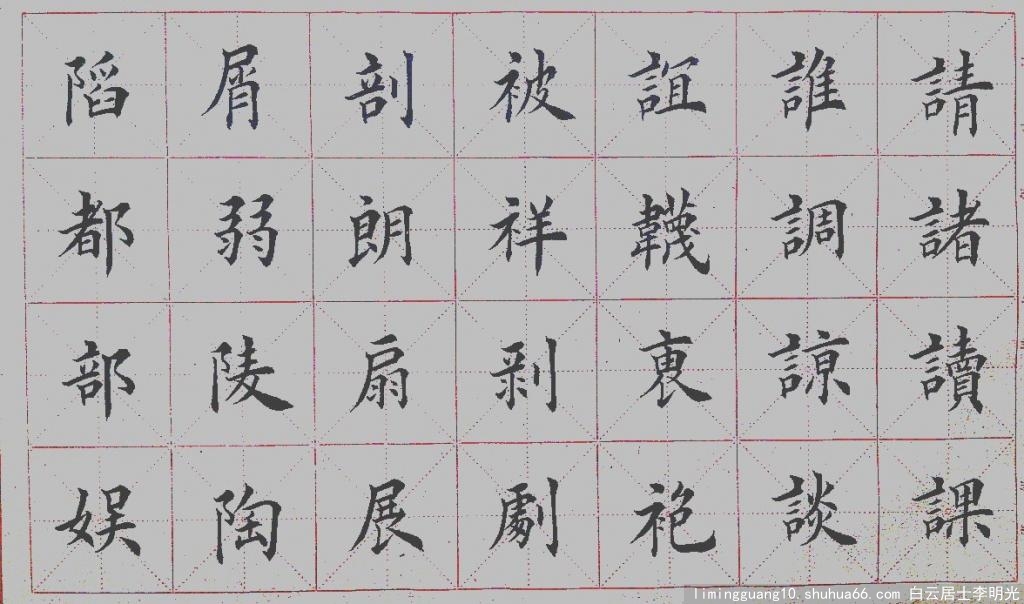 請諸讀課
誰調諒談
誼韈衷袍
被祥剝劇
剖朗扇展
屑弱陵陶
陷都部娛
limingguang10.shuhua66.com 白云居士李明光